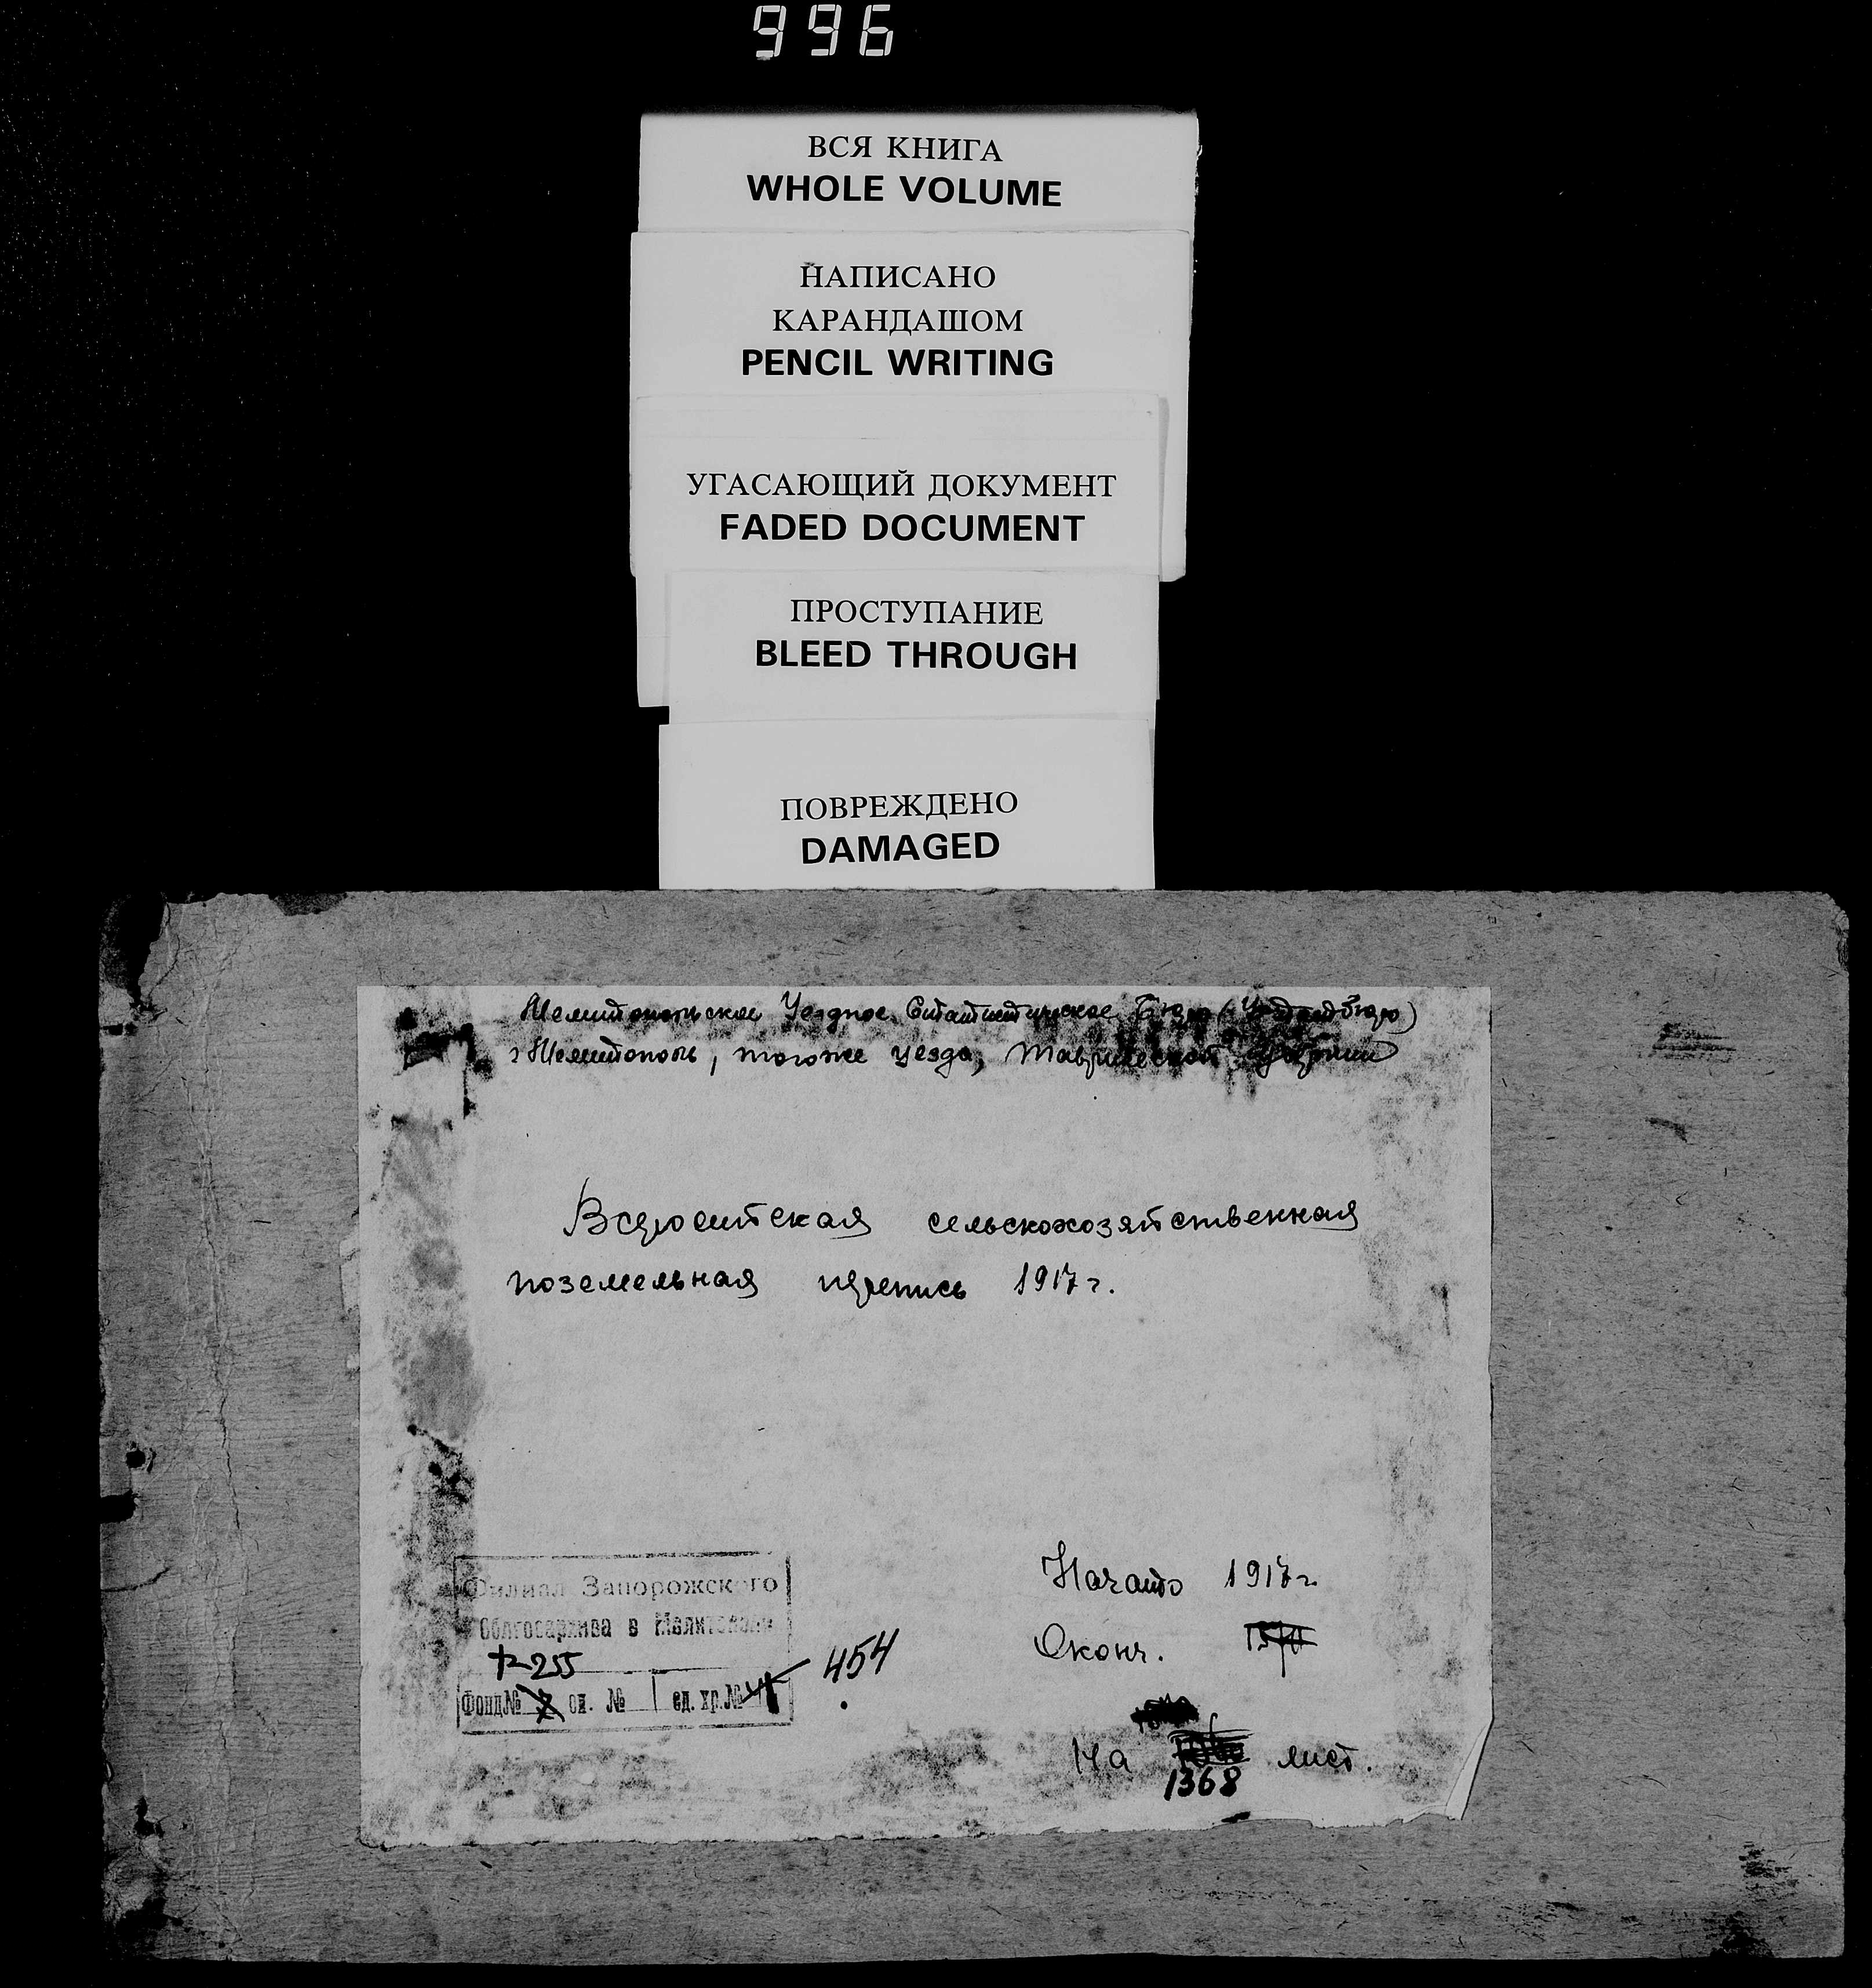 996
ВСЯ КНИГА
WHOLE VOLUME
НАПИСАНО
КАРАНДАШОМ
PENCIL WRITING
УГАСАЮЩИЙ ДОКУМЕНТ
FADED DOCUMENT
ПРОСТУПАНИЕ
BLEED THROUGH
ПОВРЕЖДЕНО
DAMAGED
Мелитопольское Уездное Статистическое Бюро (Уестатбюро)
г Мелитополь, тогоже уезда, Таврической губернии
Всероссийская сельскохозяйственная
поземельная перепись 1917 г.
Филиал Запорожского
Облгосархива в Мелитополе
Р-255
Фонд № оп. № 1 ед. хр. №
454
Начато 1917 г.
Оконч.
На лист.
1368